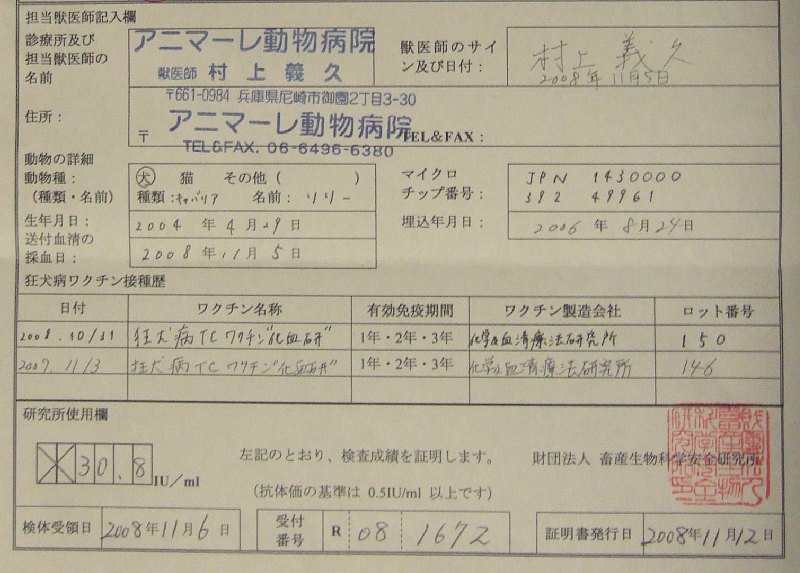 担当獣医師記入欄
診療所及び
担当獣医師の
名前
アニマーレ動物病院
獣医師 村上義久
獣医師のサイ
ン及び日付:
村上 義久
2008年 11月5日
住所:
〒661-0984 兵庫県尼崎市御園2丁目3-30
〒
アニマーレ動物病院
TEL&FAX. 06-6496-6380
TEL&FAX:
動物の詳細
動物種:
(種類・名前)
犬 猫 その他( )
種類:キャバリア 名前:リリー
マイクロ
チップ番号:
JPN 1430000
392 49961
生年月日:
2004 年 4月29日
埋込年月日:
2006 年 8月24日
送付血清の
採血日:
2008 年 11月 5日
狂犬病ワクチン接種歴
日付 ワクチン名称 有効免疫期間 ワクチン製造会社 ロット番号
2008.10/31 狂犬病TCワクチン"化血研" 1年・2年・3年 化学及血清療法研究所 150
2007.11/3 狂犬病TCワクチン"化血研" 1年・2年・3年 化学及血清療法研究所 146
研究所使用欄
30.8 IU/ml
左記のとおり、検査成績を証明します。
(抗体価の基準は 0.5IU/ml 以上です)
財団法人 畜産生物科学安全研究所
検体受領日 2008年11月6日
受付
番号
R 08 1672
証明書発行日 2008年11月12日